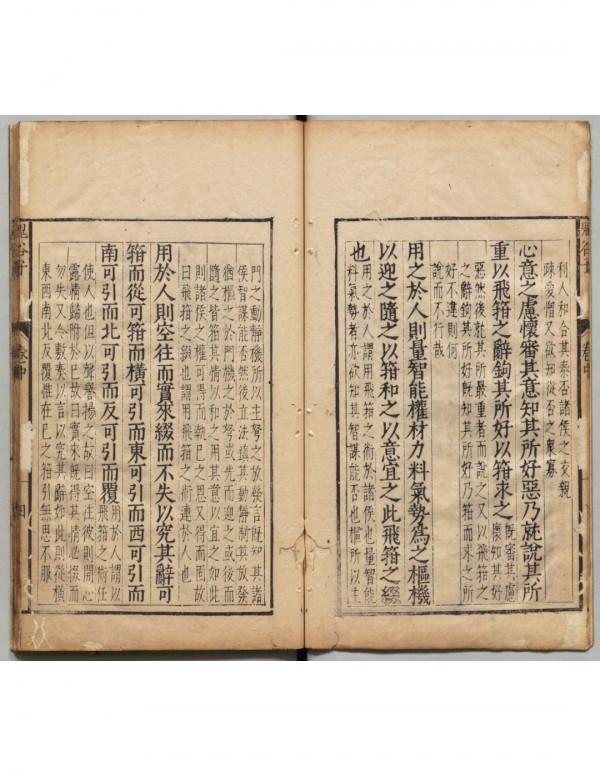 利人和合其泰否諸侯之交親
疎愛憎又欲知從否之衆寡
心意之慮懷審其意知其所好惡乃就說其所
重以飛箝之辭鉤其所好以箝求之既審其慮
懷知其好
惡然後就其所嚴重者而說之又以飛箝之
之辭鉤其所好既知其所好乃箝而求之所
好不違則何
說而不行哉
用之於人則量智能權材力料氣勢爲之樞機
以迎之隨之以箝和之以意宜之此飛箝之綴
也用之於人謂用飛箝之術於諸侯也量智能
料氣勢者亦欲知其智謀能否也樞所以主
門之動靜機所以主弩之放發言既知其諸
侯智謀能否然後立法鎮其動靜制其放發
猶樞之於門機之於弩或先而迎之或後而
隨之皆箝其情以和之用其意以宜之如此
則諸侯之權可得而執已之恩又得而固故
曰飛箝之綴也謂用飛箝之術連於人也
用於人則空往而實來綴而不失以究其辭可
箝而從可箝而橫可引而東可引而西可引而
南可引而北可引而反可引而覆用於人謂以
飛箝之術任
使人也但以聲譽揚之故曰空往彼則開心
露情歸附於已故曰實來既得其情必綴而
勿失又令敷奏以言以究其辭如此則從橫
東西南北反覆惟在已之箝引無思不服
鬼谷子 卷中 四